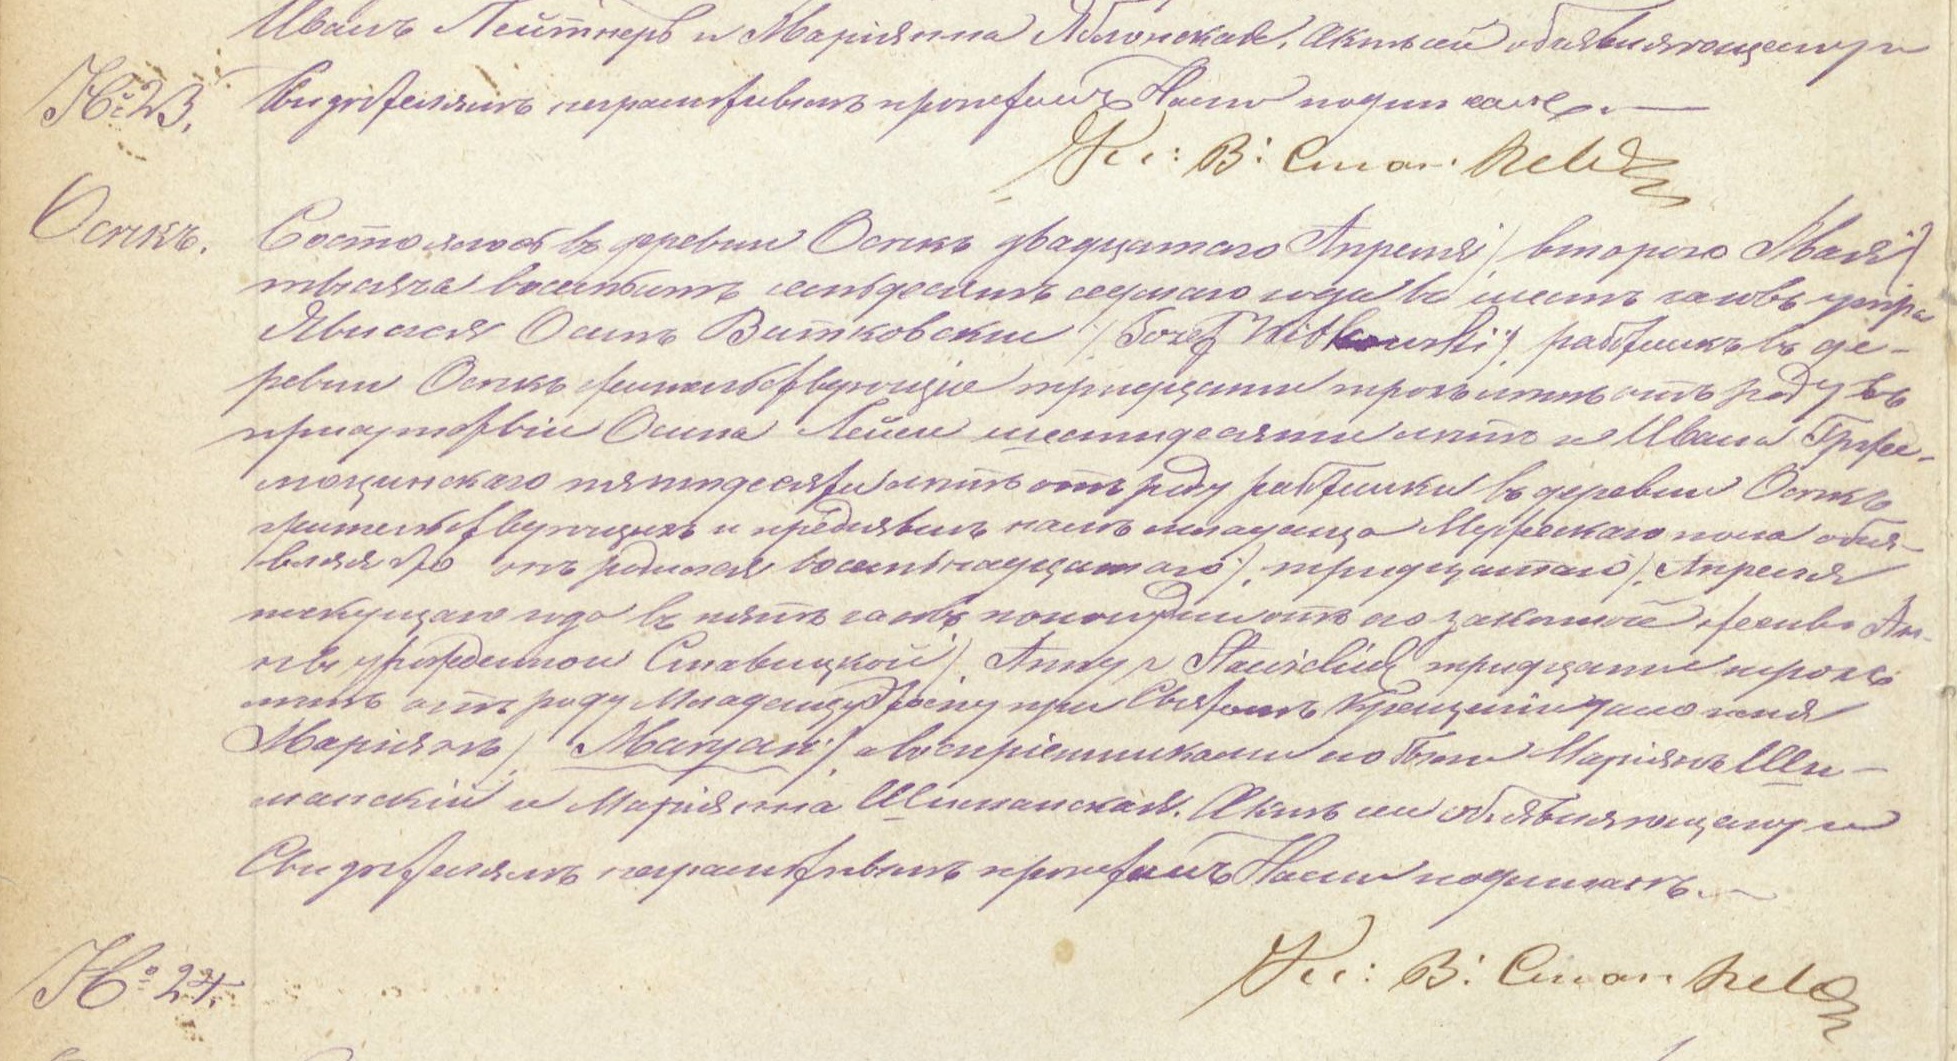 Иванъ Лейтнеръ и Маріянна Яблонская. Актъ сей объявляющему и
№ 23. Свидѣтелямъ неграмотнымъ прочитанъ Нами подписанъ.
Кс: В: Стан.
Осѣкъ. Состоялось въ деревни Осѣкъ двадцатаго Апрѣля / втораго Мая /
тысяча восемьсотъ семьдесятъ седьмаго года въ шесть часовъ утра
Явился Осипъ Витковски / Józef Witkowski / работникъ въ де-
ревни Осѣкъ жительствующіе тридцати трохъ лѣтъ отъ роду въ
присутствіи Осипа шестидесяти лѣтъ и Ивана Грже-
мощинскаго пятидесяти лѣтъ отъ роду работники въ деревни Осѣкъ
жительствующихъ и предъявилъ намъ младенца Мужескаго пола объя-
вляя что онъ родился восемьнадцатаго / тридцатаго / Апрѣля
текущаго года въ пять часовъ пополудни отъ его законной жены Ан-
ны урожденной Ставицкой / Anny z / тридцати трохъ
лѣтъ отъ роду Младенцу этому при Святомъ Крещеніи дано имя
Маріянъ / Maryan / а воспріемниками его были Маріянъ Ши-
манскій и Маріянна Шиманская. Актъ сей объявляющему и
Свидѣтелямъ неграмотнымъ прочитанъ Нами подписанъ.
Кс: В: Стан.
№ 24.